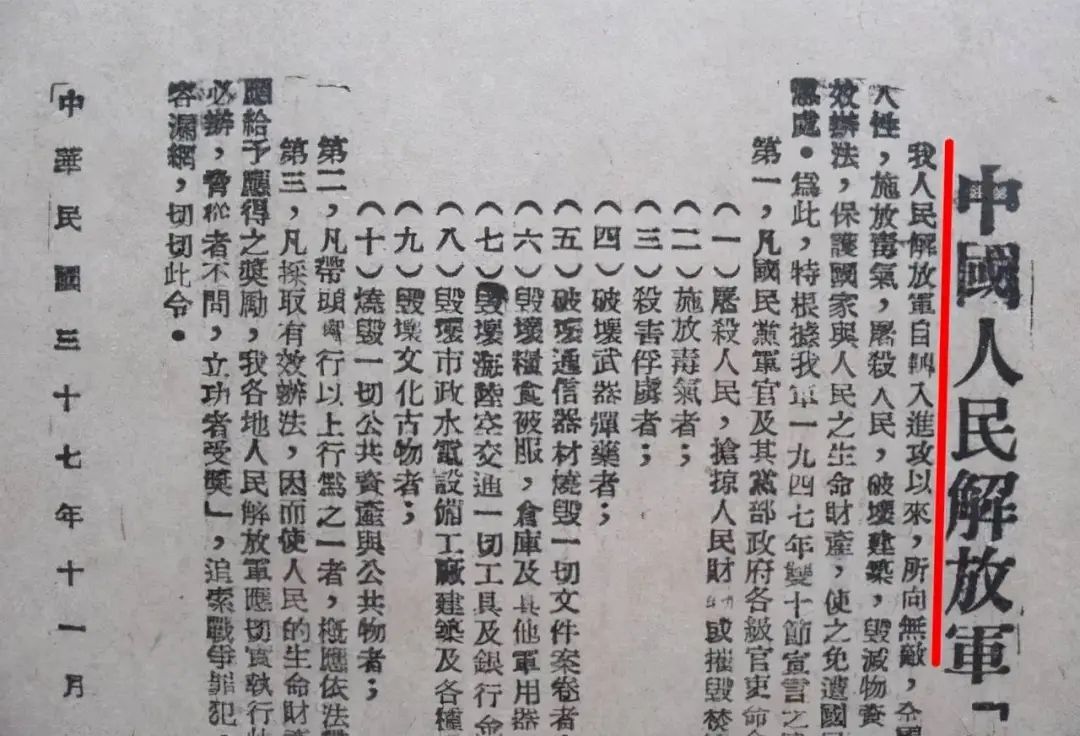 中國人民解放軍「
我人民解放軍自轉入進攻以來，所向無敵，全國
人性，施放毒氣，屠殺人民，破壞建築，毀滅物資
效辦法，保護國家與人民之生命財產，使之免遭國民
懲處。爲此，特根據我軍一九四七年雙十節宣言之
第一，凡國民黨軍官及其黨部政府各級官吏命
（一）屠殺人民，搶掠人民財 或摧毀焚
（二）施放毒氣者；
（三）殺害俘虜者；
（四）破壞武器彈藥者；
（五）破壞通信器材燒毀一切文件案卷者
（六）毀壞糧食被服，倉庫及其他軍用器
（七）毀壞海陸空交通一切工具及銀行金
（八）毀壞市政水電設備工廠建築及各種
（九）毀壞文化古物者；
（十）燒毀一切公共資產與公共物者；
第二，凡帶頭實行以上行爲之一者，概應依法
第三，凡採取有效辦法，因而使人民的生命財產
應給予應得之獎勵，我各地人民解放軍應切實執行
必辦，脅從者不問，立功者受獎」，追索戰爭罪犯，
容漏網，切切此令。
「中華民國三十七年十一月